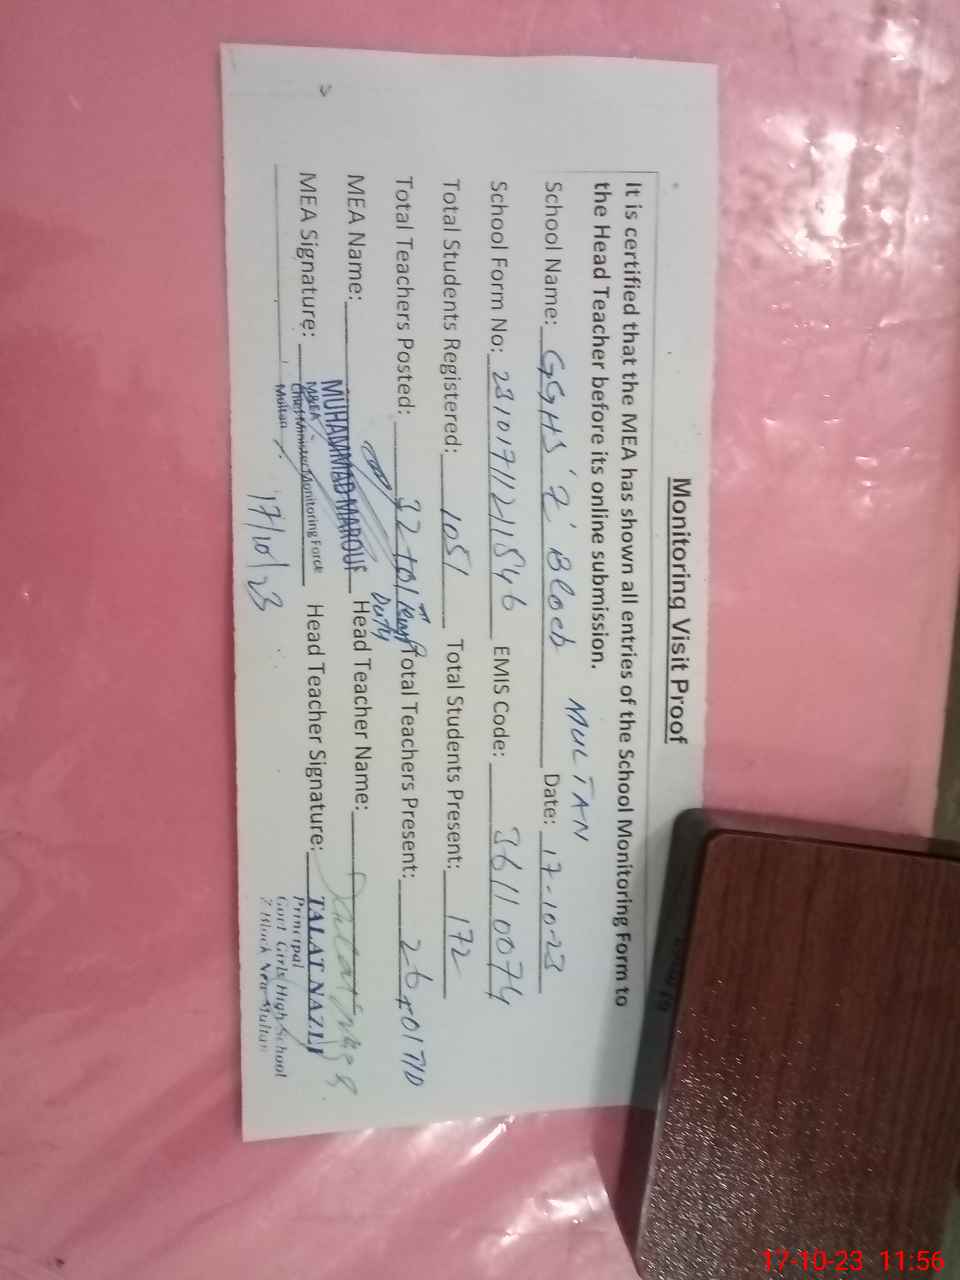 Monitoring Visit Proof
It is certified that the MEA has shown all entries of the School Monitoring Form to
the Head Teacher before its online submission.
MULTAN
School Name: GGHS 'Z' Block Date: 17-10-23
School Form No: EMIS Code: 36110074
Total Students Registered: 1051 Total Students Present: 172
Total Teachers Posted: 32+01 Duty Total Teachers Present: 26+01 T/D
MEA Name: MUHAMMAD MAROUF Head Teacher Name:
MEA Signature: Head Teacher Signature: TALAT NAZLI
MEA
Chief Minister Monitoring Force
Multan
Principal
Govt Girls High School
Z Block New Multan
17/10/23
17-10-23 11:56